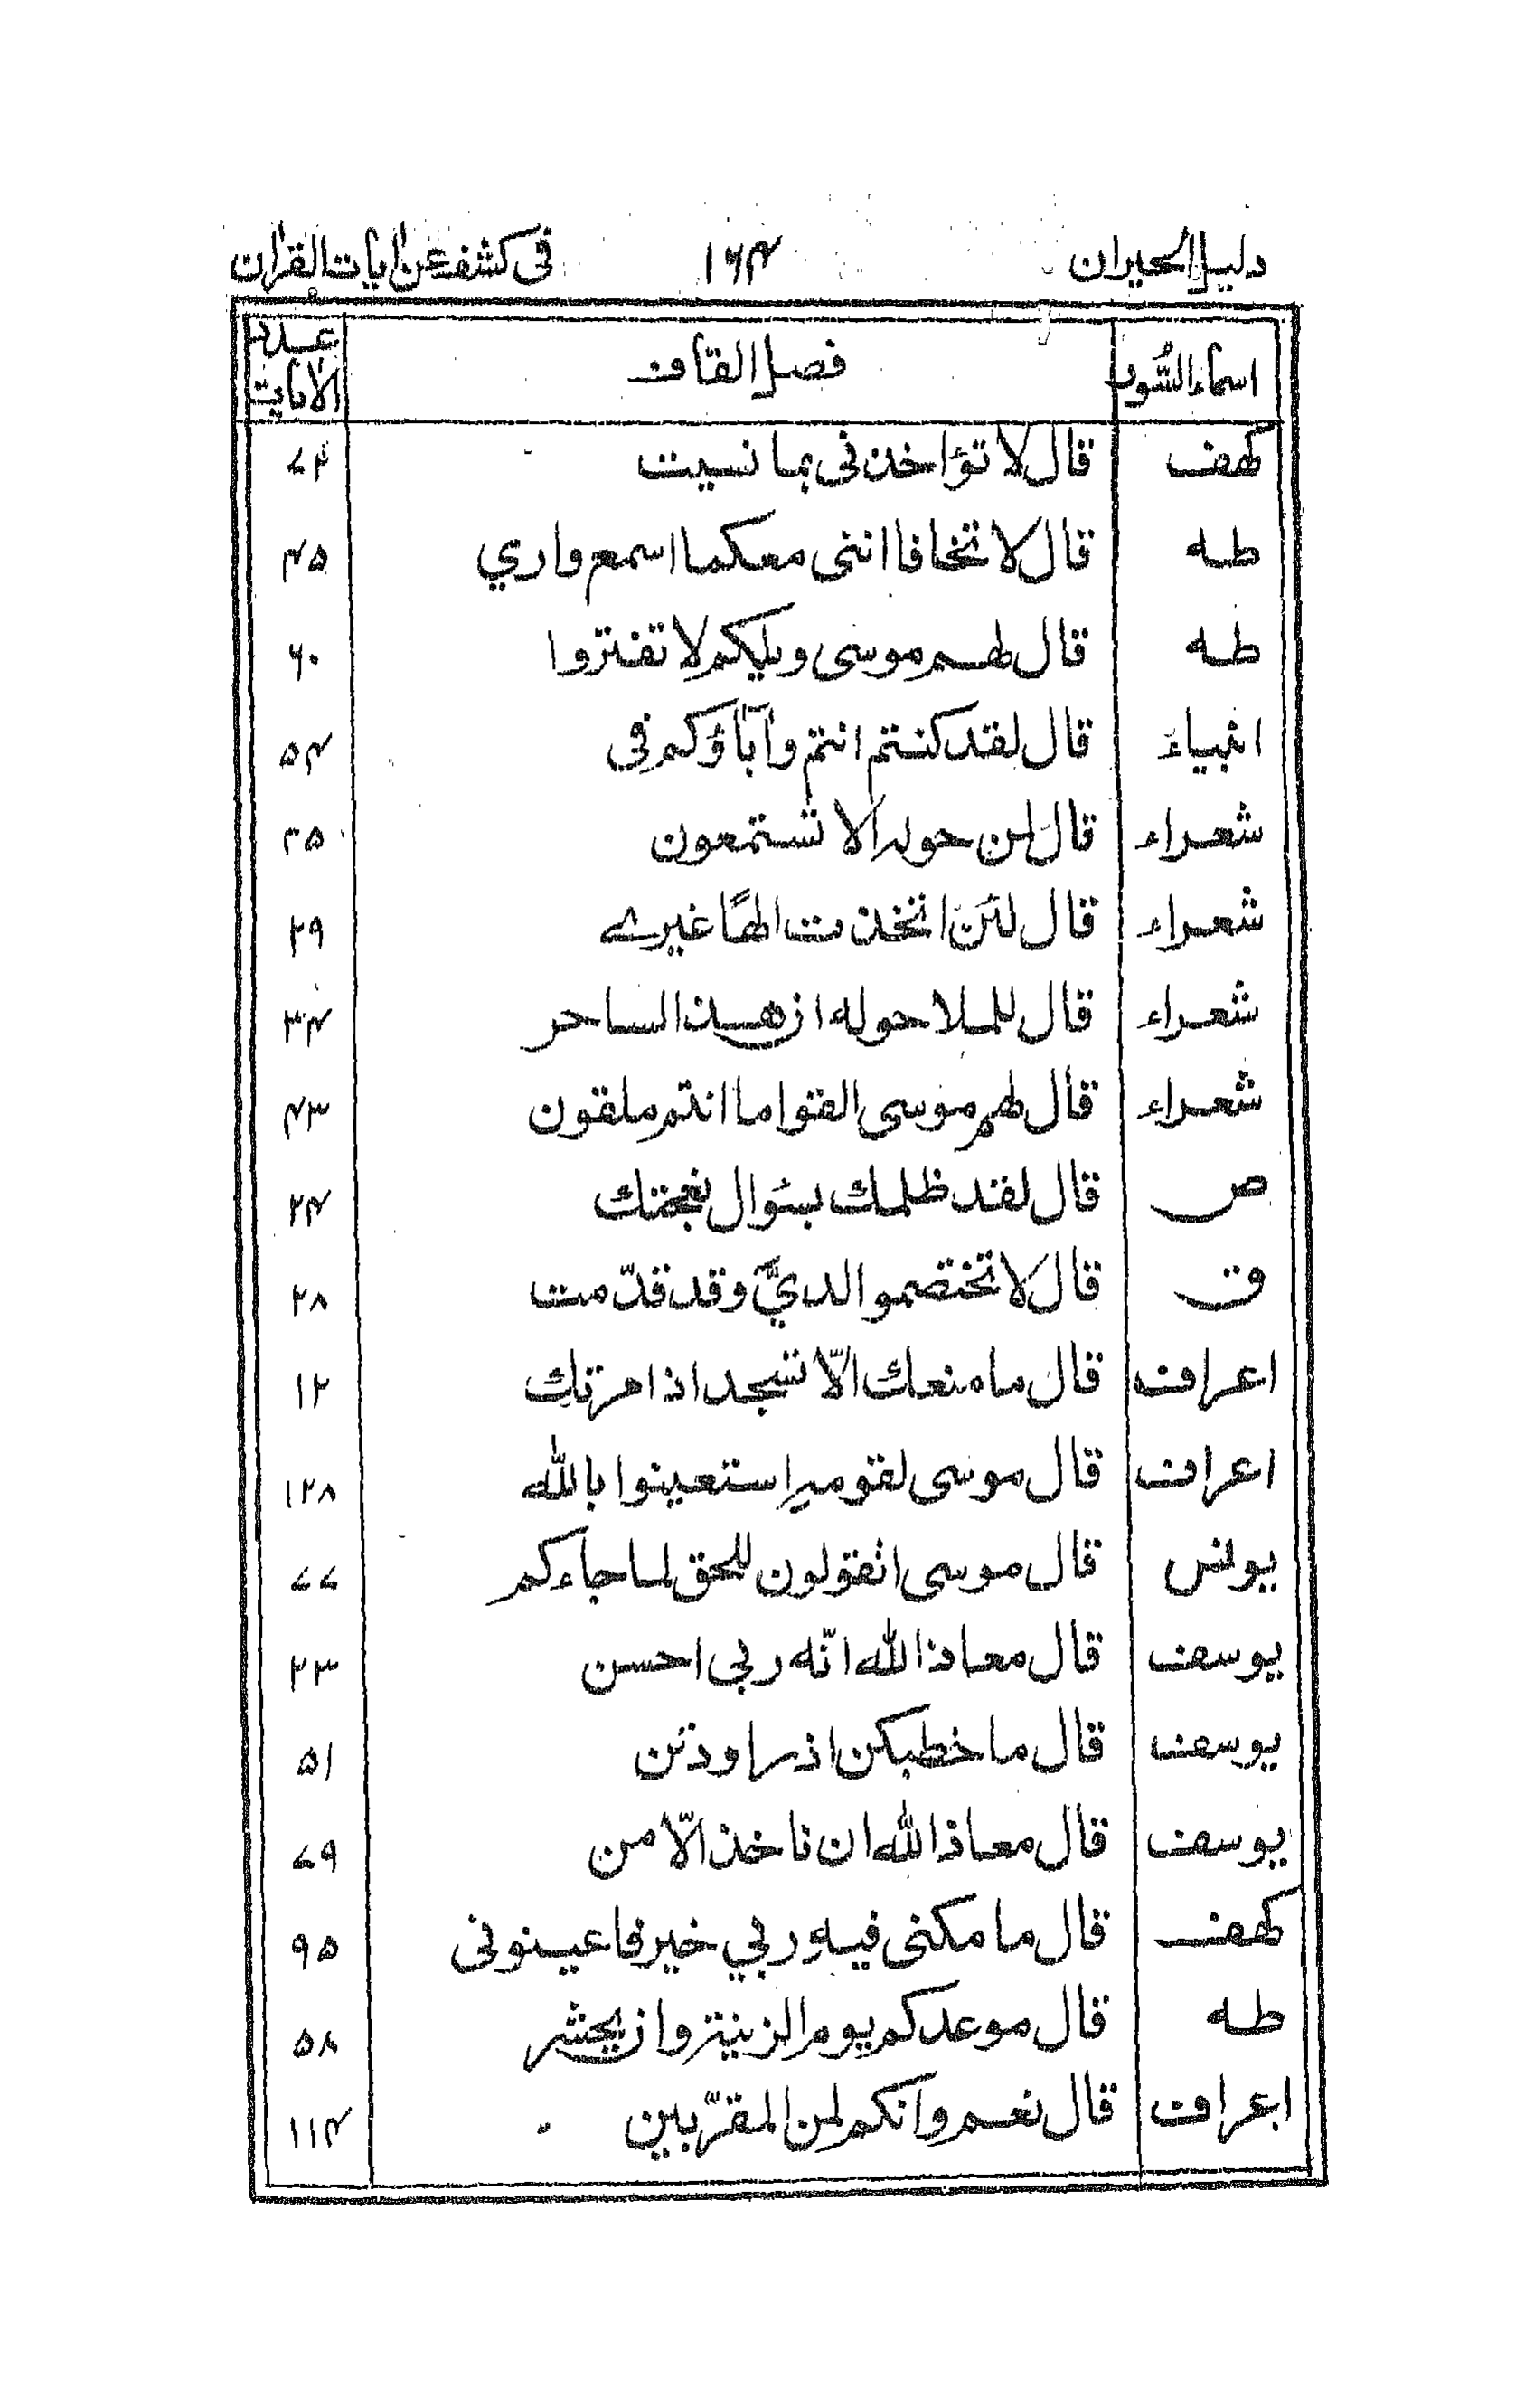 دليل الحيران ۱۶۴ فى كشف عن ايات القران
اسماء السُّور فصل القاف عدد الأيات
كهف قال لا تؤاخذنى بما نسيت ۷۳
طه قال لا تخافا اننى معكما اسمع واري ۴۵
طه قال لهم موسى ويلكم لا تفتروا ۶۰
انبياء قال لقد كنتم انتم وآباؤكم في ۵۴
شعراء قال لمن حوله الا تستمعون ۲۵
شعراء قال لئن اتخذت الهًا غيرے ۲۹
شعراء قال للملا حوله ان هذا الساحر ۳۴
شعراء قال لهم موسى القوا ما انتم ملقون ۴۳
ص قال لقد ظلمك بسؤال نعجتك ۲۴
ق قال لا تختصموا لديَّ وقد قدّمت ۲۸
اعراف قال ما منعك الّا تسجد اذ امرتك ۱۲
اعراف قال موسى لقومه استعينوا بالله ۱۲۸
يونس قال موسى اتقولون للحق لما جاءكم ۷۷
يوسف قال معاذ الله انّه ربى احسن ۲۳
يوسف قال ما خطبكن اذ راودتن ۵۱
يوسف قال معاذ الله ان ناخذ الّا من ۷۹
كهف قال ما مكنى فيه ربي خير فاعينونى ۹۵
طه قال موعدكم يوم الزينة وان يحشر ۵۸
اعراف قال نعم وانكم لمن المقرّبين ۱۱۴